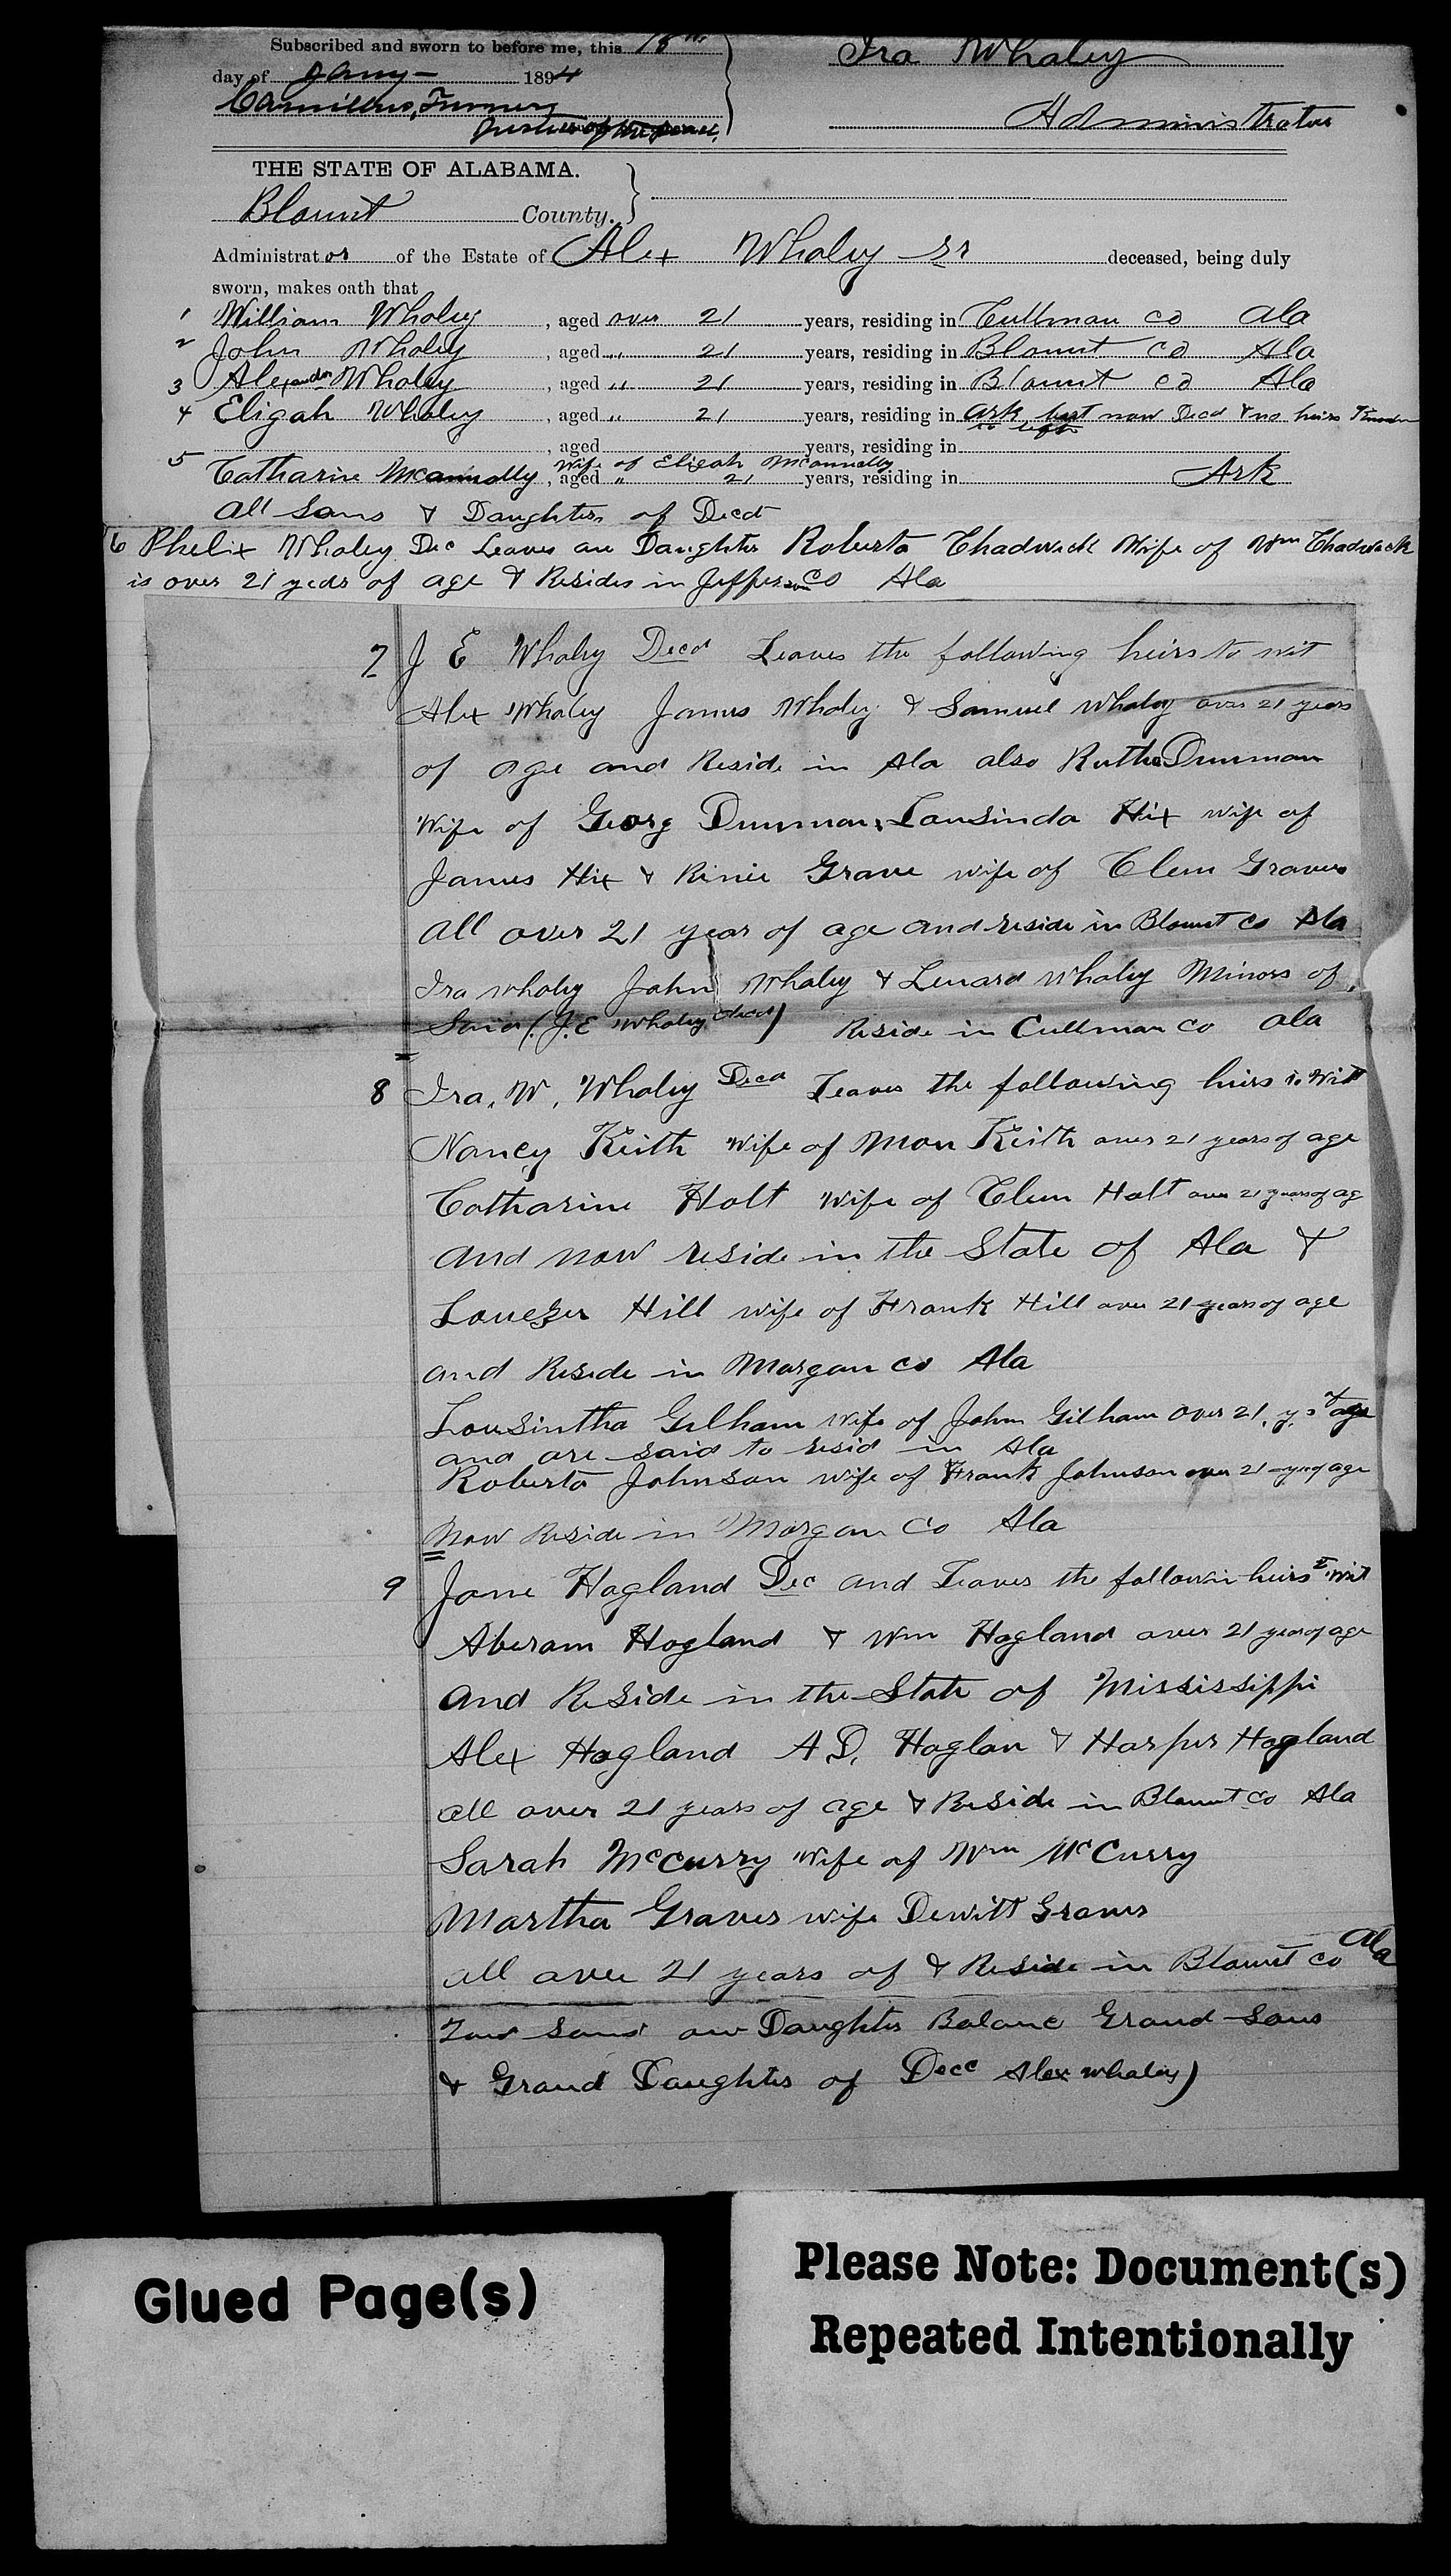 Subscribed and sworn to before me, this 18th
day of Jany 1894
Camillus, Turner
Justice of the peace,
Ira Whaley
Administrator
THE STATE OF ALABAMA.
Blount County.
Administrat or of the Estate of Alex Whaley sr deceased, being duly
sworn, makes oath that
1 William Whaley, aged over 21 years, residing in Cullman co Ala
2 John Whaley, aged " 21 years, residing in Blount co Ala
3 Alexander Whaley, aged " 21 years, residing in Blount co Ala
4 Eligah Whaley, aged " 21 years, residing in Ark but now Decd & no heirs
left
, aged years, residing in
Wife of Eligah Mcannally
5 Catharine Mcannally, aged " 21 years, residing in Ark
All Sons & Daughters of Decd
6 Phelix Whaley Dec Leaves an Daughter Roberta Chadwick Wife of Wm Chadwick
is over 21 years of age & Resides in Jefferson Co Ala
7 J E Whaley Decd Leaves the following heirs to wit
Alex Whaley James Whaley & Samuel Whaley over 21 years
of age and Reside in Ala also Ruth Dunman
Wife of Georg Dunman, Lousinda Hix wife of
James Hix & Rinie Grave wife of Clem Graves
all over 21 year of age and reside in Blount co Ala
Ira Whaley John Whaley & Lenard Whaley Minors of
Said (J. E Whaley decd) Reside in Cullman co Ala
8 Ira, W, Whaley Decd Leaves the following heirs to Wit
Nancy Keith Wife of Mon Keith over 21 years of age
Catharine Holt Wife of Clem Holt over 21 years of ag
and now reside in the State of Ala &
Louezer Hill wife of Frank Hill over 21 years of age
and Reside in Morgan co Ala
Lousintha Gilham wife of John Gilham over 21, y,s of age
and are said to resid in Ala
Roberta Johnson wife of Frank Johnson over 21 - yr of age
Now Reside in Morgan Co Ala
9 Jane Hagland Dec and Leaves the followin heirs to wit
Aberam Hogland & Wm Hogland over 21 year of age
and Reside in the State of Mississippi
Alex Hogland A D, Hoglan & Harper Hogland
all over 21 years of age & Reside in Blount co Ala
Sarah McCurry Wife of Wm McCurry
Martha Graves wife Dewitt Graves
all over 21 years of & Reside in Blount co Ala
Four sons one Daughter Balance Grand-sons
& Grand Daughters of Decd Alex Whaley)
Glued Page(s)
Please Note: Document(s)
Repeated Intentionally